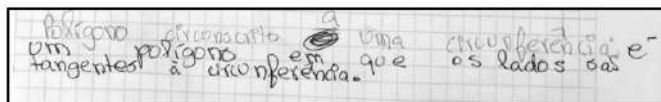 Polígono circonscrito a uma circunferência: e-
um polígono em que os lados sao
tangentes à circonferência.